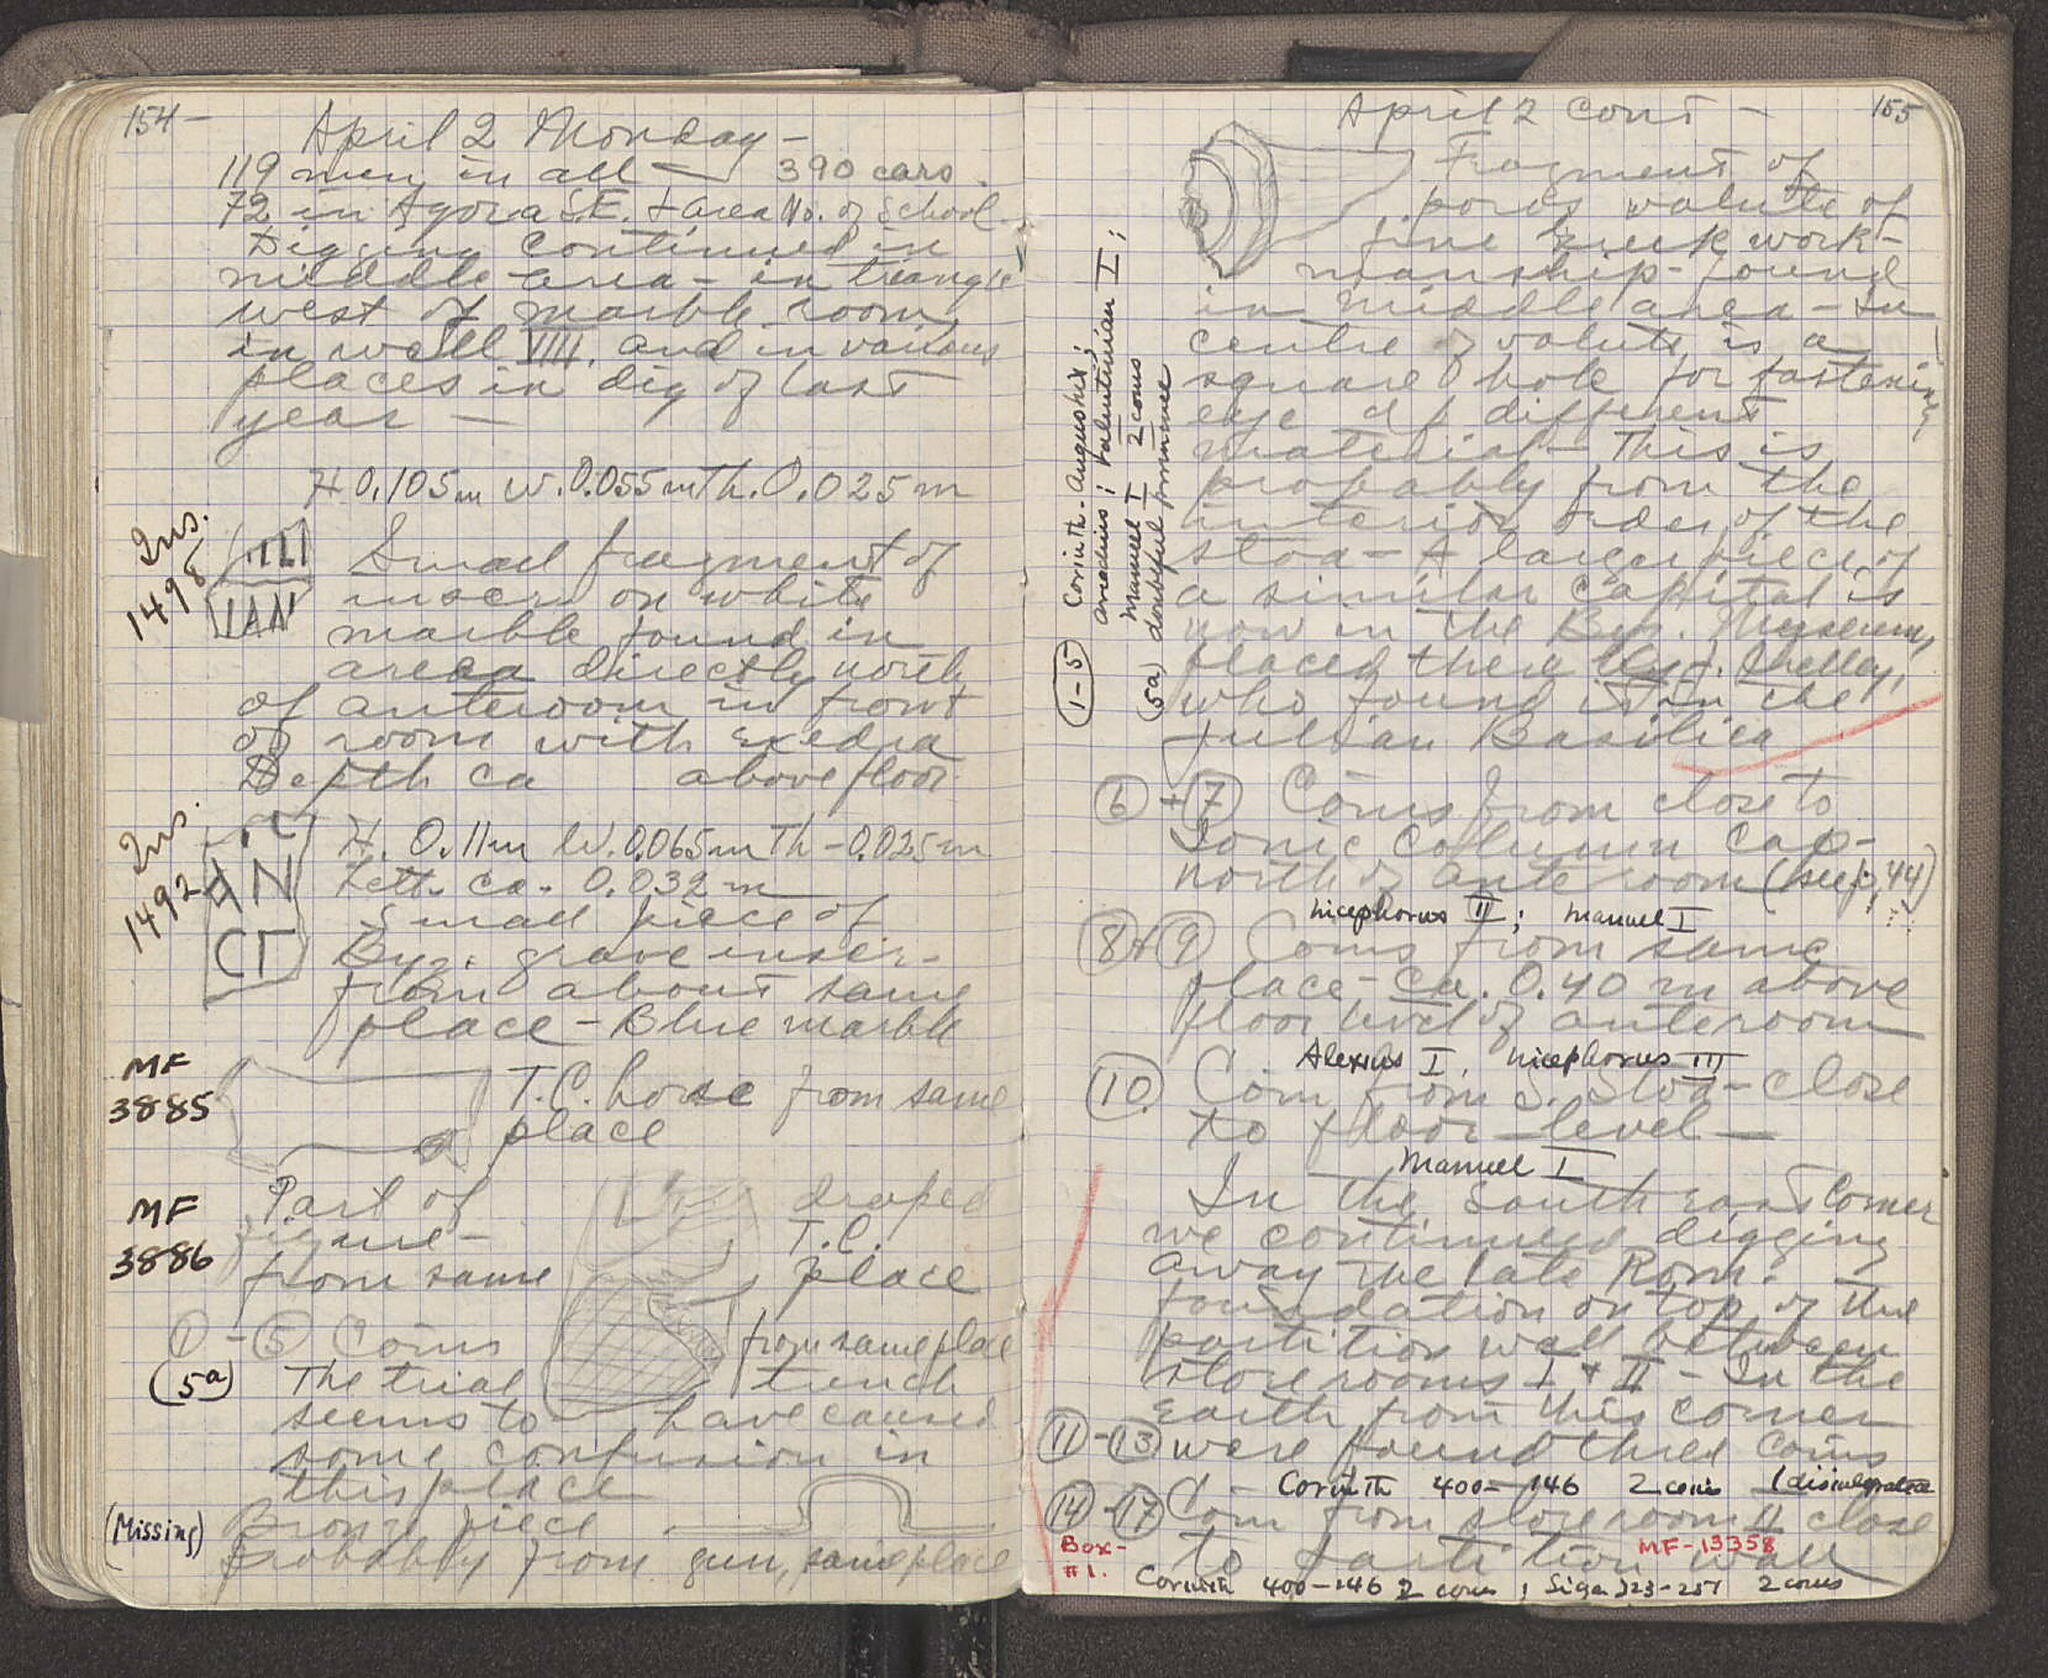 154 -
April 2 Monday -
119 men in all - 390 cars.
72 in Agora S.E. + area No. of School.
Digging continued in
middle area - in triangle
west of marble room,
in well VIIII. and in various
places in dig of last
year -
H 0.105m W. 0.055m Th. 0.025m
Ins.
1498
Small fragment of
inscr on white
marble found in
area directly north
of anteroom in front
of room with exedra
Depth ca above floor
Ins.
1492
ΑΝ
СΓ
H. 0.11m W. 0.065m Th - 0.025m
Lett. ca. 0.032m
Small piece of
Byz. grave inscr.
from about same
place - Blue marble
MF
3885
T.C. horse from same
place
MF
3886
Part of draped
figure - T.C.
from same place
1 - 5 Coins from same place
(5a) The trial trench
seems to have caused
some confusion in
this place
(Missing) Bronze piece
probably from gun, same place
155
April 2 cont -
Fragment of
poros volute of
fine Greek work-
manship - found
in middle area - In
centre of volute is a
square hole for fastening
eye of different
material - This is
probably from the
interior order of the
stoa - A larger piece of
a similar capital is
now in the Byz. Museum,
placed there by J. Shelley,
who found it in the
Julian Basilica
1-5 Corinth - Augustus;
Arcadius; Valentinian I;
Manuel I 2 coins
(5a) doubtful
6 + 7 Coins from close to
Ionic column cap-
north of anteroom (see p. 44)
Nicephorus II; Manuel I
8 + 9 Coins from same
place - ca. 0.40 m above
floor level of anteroom
Alexius I, Nicephorus III
10. Coin from S. Stoa - close
to floor - level -
Manuel I
In the southeast corner
we continued digging
away the late Rom.
foundation on top of the
partition wall between
storerooms I + II - In the
earth from this corner
11 - 13 were found three coins
Corinth 400-146 2 coins 1 disintegrated
14 - 17 Coin from storeroom II close
to partition wall
Box -
#1.
MF-13358
Corinth 400-146 2 coins; 2 coins